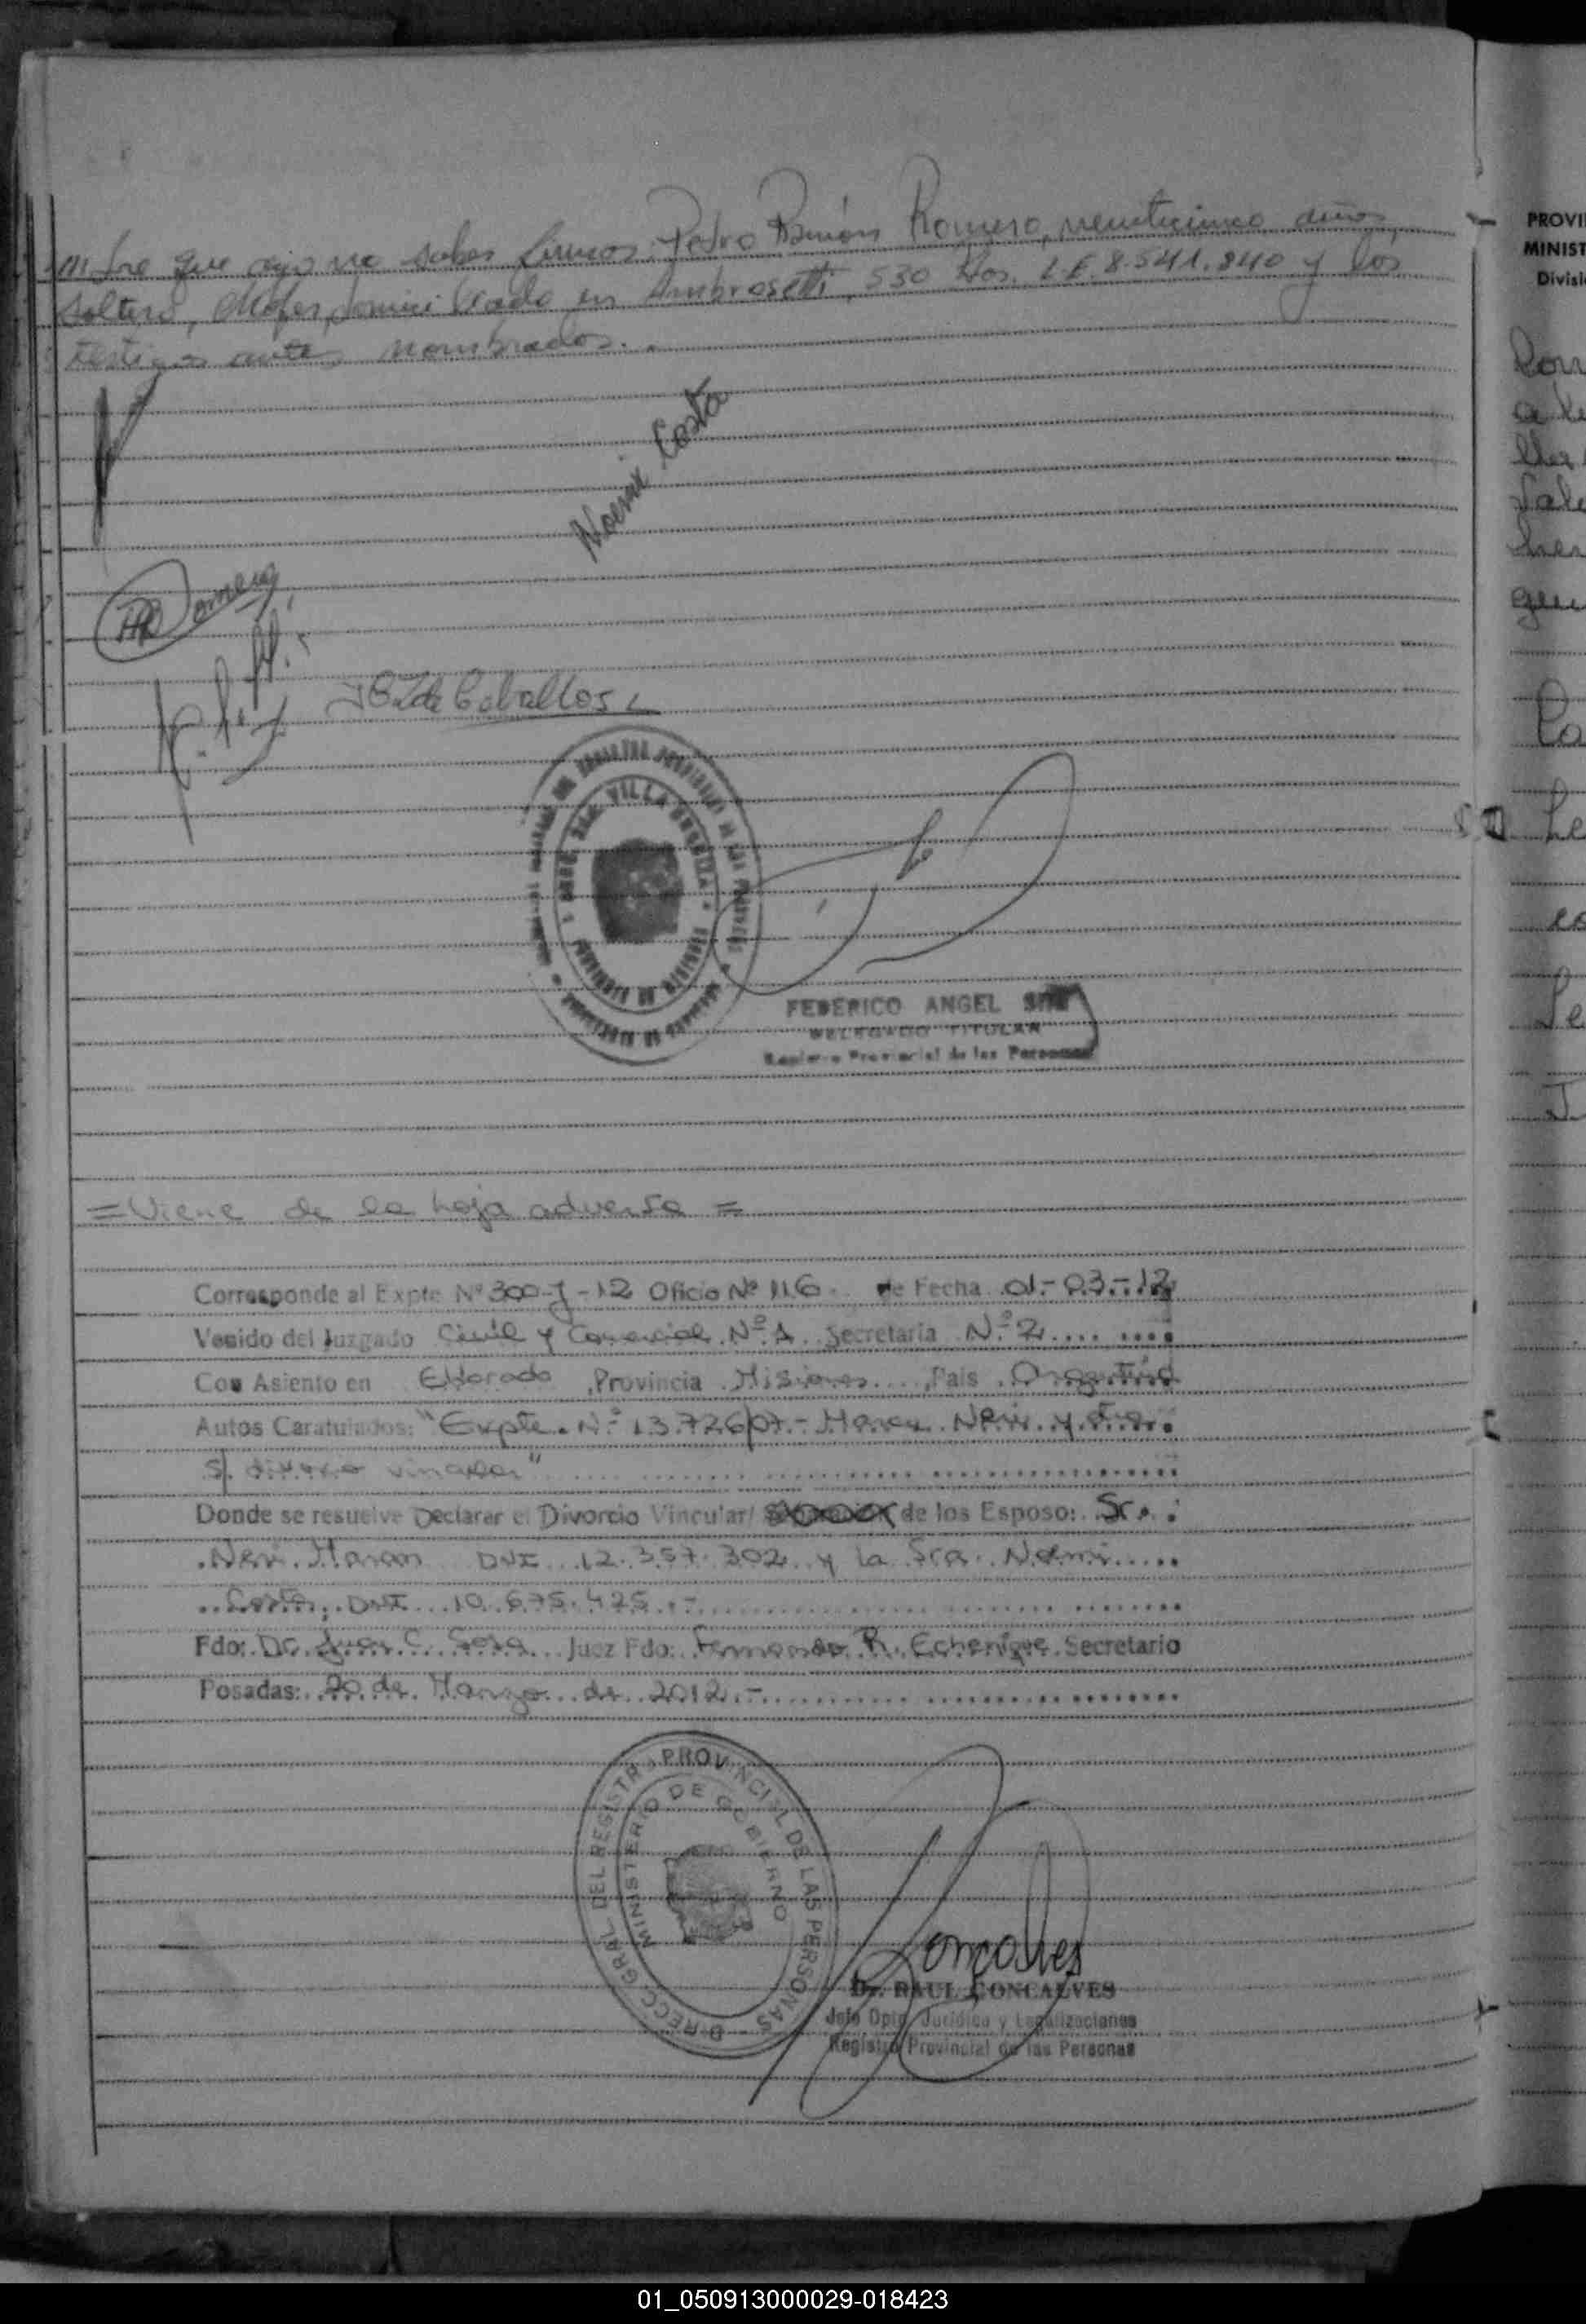 que dijo no saber firmar: Pedro Ramón Romero, veinticinco años,
soltero, chofer, domiciliado en Ambrosetti 530 Pos. L.E. 8.541.840 y los
testigos antes nombrados.
Noemi Costa
de Ceballos
VILLA
FEDERICO ANGEL
DELEGADO TITULAR
Registro Provincial de las Personas
= Viene de la hoja adversa =
Corresponde al Expte Nº 300-J-12 Oficio Nº 116. de Fecha 01-03-12
Venido del Juzgado Civil y Comercial Nº 1 Secretaria Nº 2
Con Asiento en Eldorado, Provincia Misiones, Pais Argentina
Autos Caratulados: "Expte. Nº 13.726/07.- Neri y
s/ divorcio vincular"
Donde se resuelve Declarar el Divorcio Vincular/ de los Esposo: Sr.
Neri DNI 12.357.302 y la Sra. Noemi
Costa, DNI 10.675.425.-
Fdo: Dr. Juan C. Sosa Juez Fdo: Fernando R. Echenique Secretario
Posadas: 20 de Marzo de 2012.-
DIRECC. GRAL DEL REGISTRO PROVINCIAL DE LAS PERSONAS
MINISTERIO DE GOBIERNO
Goncalves
Dr. RAUL GONCALVES
Jefe Dpto. Jurídico y Legalizaciones
Registro Provincial de las Personas
PROVI
MINIST
Divisi
01_050913000029-018423